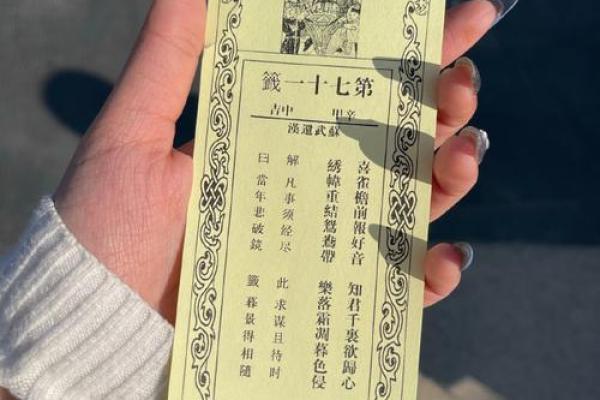 第七十一籤
辛甲 中吉
蘇武還漢
喜雀檐前報好音 知君千裏欲歸心
綉幃重結鴛鴦帶 樂落霜凋暮色侵
解 凡事须经尽 此 求谋且待时
曰 當年悲破鏡 籤 暮景得相隨